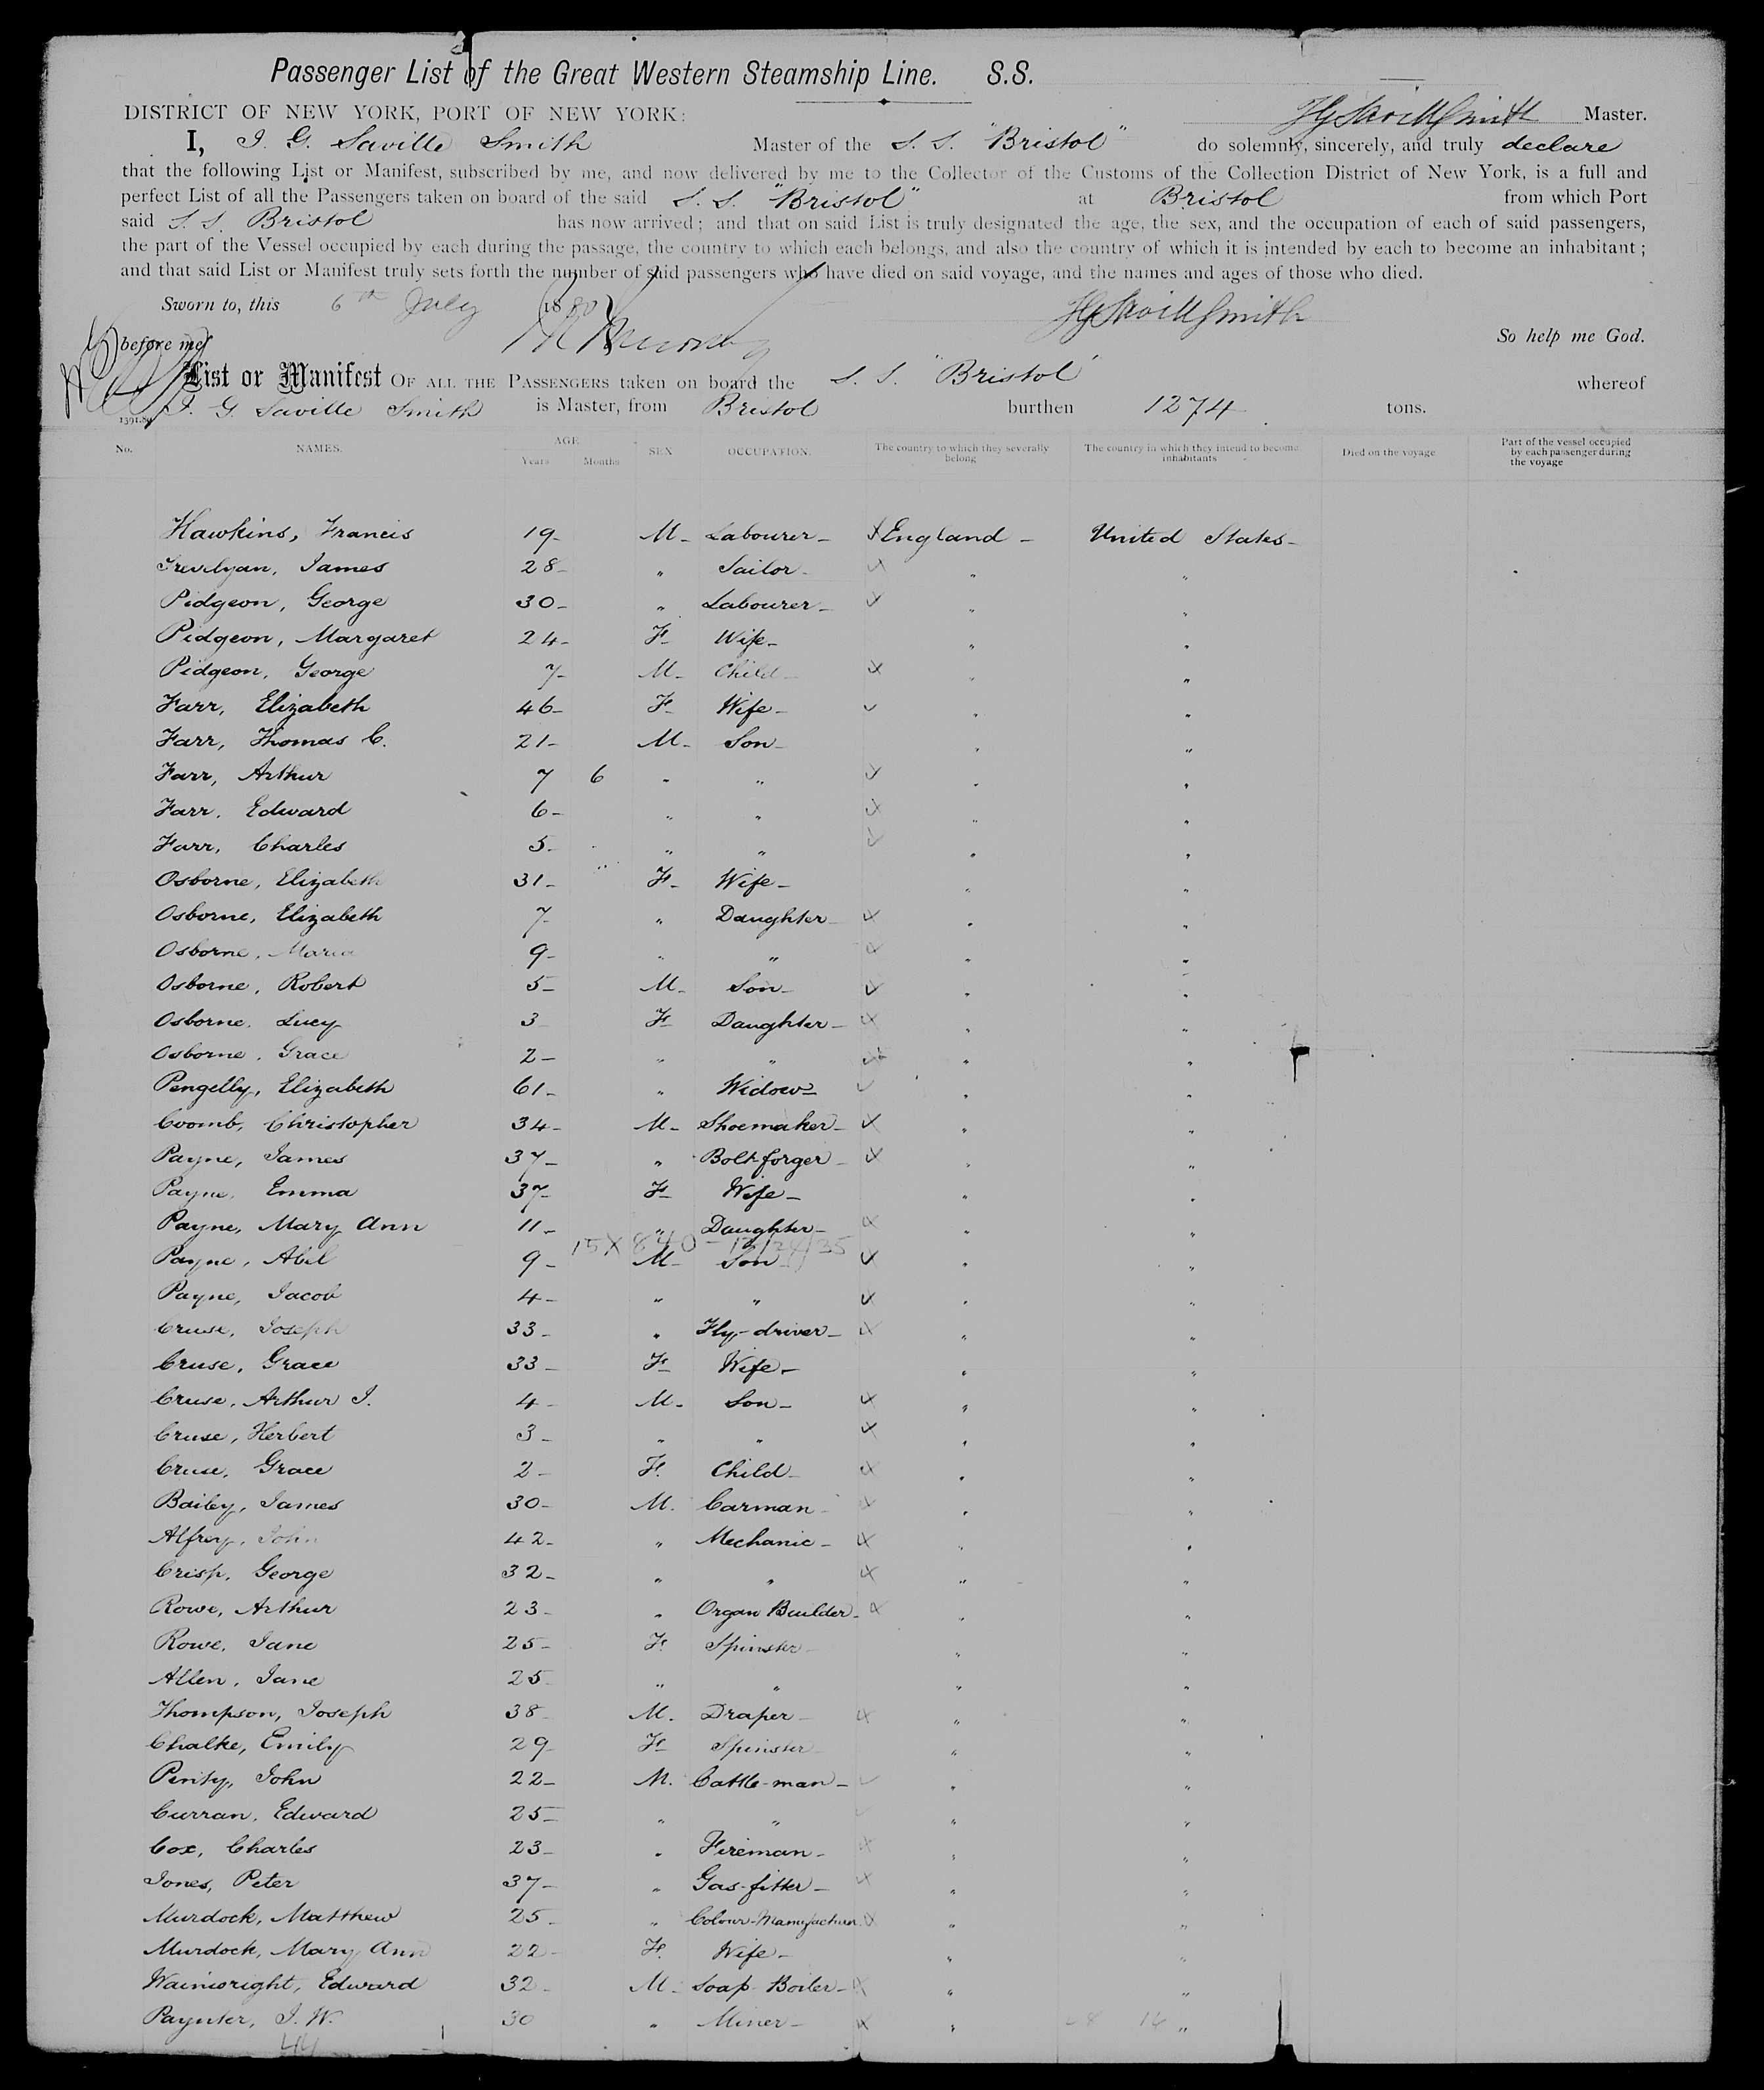 Passenger List of the Great Western Steamship Line. S.S.
DISTRICT OF NEW YORK, PORT OF NEW YORK: Master.
I, J. G. Saville Smith Master of the S. S. "Bristol" do solemnly, sincerely, and truly declare
that the following List or Manifest, subscribed by me, and now delivered by me to the Collector of the Customs of the Collection District of New York, is a full and
perfect List of all the Passengers taken on board of the said S. S. "Bristol" at Bristol from which Port
said S. S. Bristol has now arrived; and that on said List is truly designated the age, the sex, and the occupation of each of said passengers,
the part of the Vessel occupied by each during the passage, the country to which each belongs, and also the country of which it is intended by each to become an inhabitant;
and that said List or Manifest truly sets forth the number of said passengers who have died on said voyage, and the names and ages of those who died.
Sworn to, this 6th July 1880 JGSavillSmith
before me So help me God.
List or Manifest OF ALL THE PASSENGERS taken on board the S. S. "Bristol" whereof
J. G. Saville Smith is Master, from Bristol burthen 1274 tons.
No. NAMES. AGE Years Months SEX OCCUPATION. The country to which they severally belong The country in which they intend to become inhabitants Died on the voyage Part of the vessel occupied by each passenger during the voyage
Hawkins, Francis 19 - M - Labourer - England - United States -
Trevelyan, James 28 - " Sailor - " "
Pidgeon, George 30 - " Labourer - " "
Pidgeon, Margaret 24 - F - Wife - " "
Pidgeon, George 7 - M - Child - " "
Farr, Elizabeth 46 - F - Wife - " "
Farr, Thomas C. 21 - M - Son - " "
Farr, Arthur 7 6 " " " "
Farr, Edward 6 - " " " "
Farr, Charles 5 - " " " "
Osborne, Elizabeth 31 - F - Wife - " "
Osborne, Elizabeth 7 - " Daughter - " "
Osborne, Maria 9 - " " " "
Osborne, Robert 5 - M - Son - " "
Osborne, Lucy 3 F - Daughter - " "
Osborne, Grace 2 - " " " "
Pengelly, Elizabeth 61 - " Widow - " "
Coomb, Christopher 34 - M - Shoemaker - " "
Payne, James 37 - " Bolt-forger - " "
Payne, Emma 37 - F - Wife - " "
Payne, Mary Ann 11 - " Daughter - " "
Payne, Abel 9 - M - Son - " "
Payne, Jacob 4 - " " " "
Cruse, Joseph 33 - " Fly-driver - " "
Cruse, Grace 33 - F - Wife - " "
Cruse, Arthur J. 4 - M - Son - " "
Cruse, Herbert 3 - " " " "
Cruse, Grace 2 - F. Child - " "
Bailey, James 30 - M. Carman - " "
Alfrey, John 42 - " Mechanic - " "
Crisp, George 32 - " " " "
Rowe, Arthur 23 - " Organ Builder - " "
Rowe, Jane 25 - F. Spinster - " "
Allen, Jane 25 - " " " "
Thompson, Joseph 38 - M. Draper - " "
Chalke, Emily 29 - F - Spinster - " "
Perity, John 22 - M. Cattle-man - " "
Curran, Edward 25 - " " " "
Cox, Charles 23 - " Fireman - " "
Jones, Peter 37 - " Gas-fitter - " "
Murdock, Matthew 25 - " Colour-Manufacturer " "
Murdock, Mary Ann 22 - F. Wife - " "
Wainwright, Edward 32 - M - Soap Boiler - " "
Paynter, J. W. 30 " Miner - " "
44